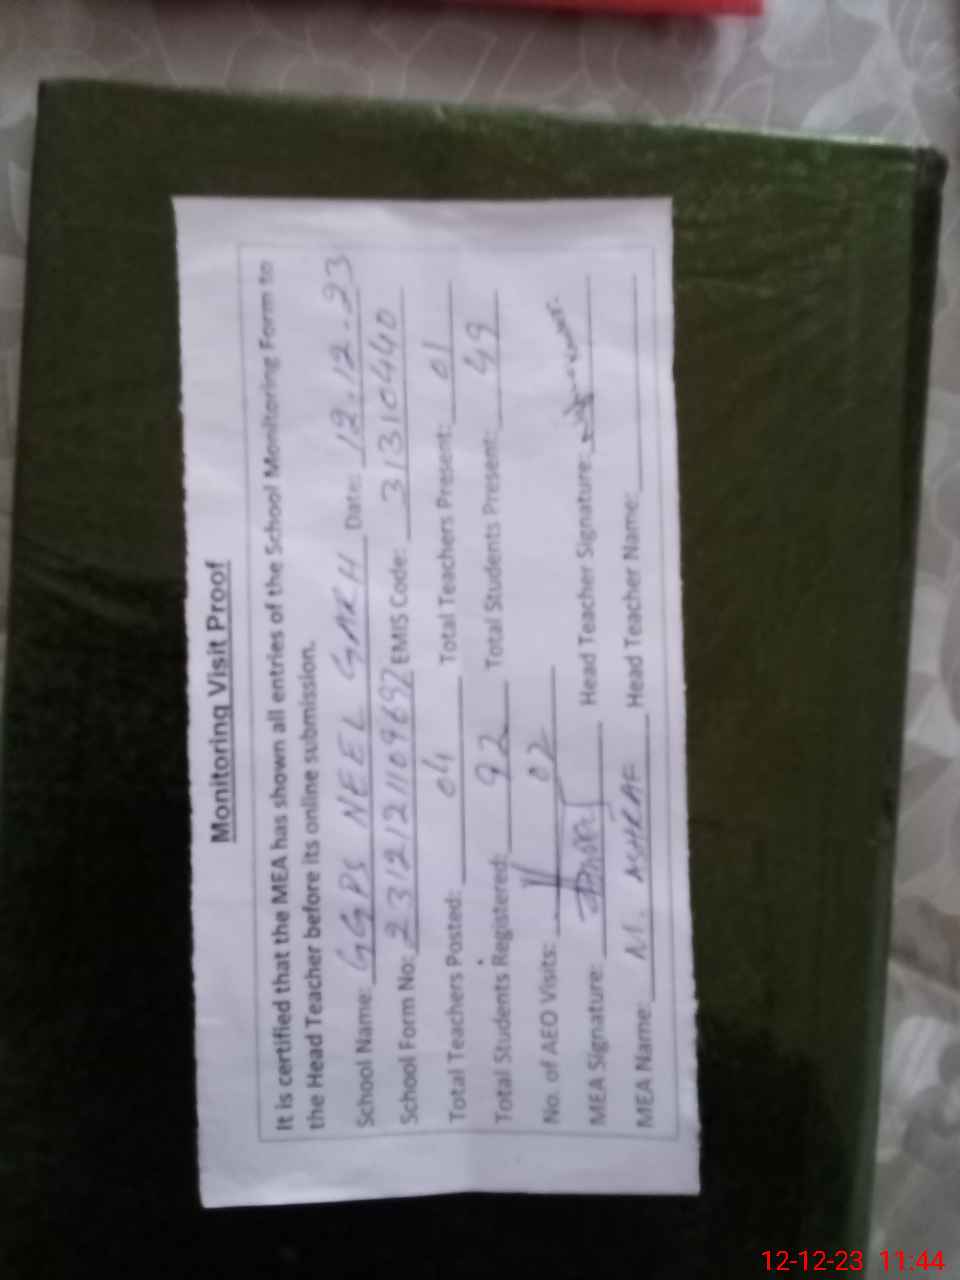 Monitoring Visit Proof
It is certified that the MEA has shown all entries of the School Monitoring Form to
the Head Teacher before its online submission.
School Name: GGPS NEEL GARH Date: 12.12.23
School Form No: 2312121109697 EMIS Code: 31310440
Total Teachers Posted: 04 Total Teachers Present: 01
Total Students Registered: 92 Total Students Present: 49
No. of AEO Visits: 02
MEA Signature: Head Teacher Signature:
MEA Name: M. ASHRAF Head Teacher Name:
12-12-23 11:44